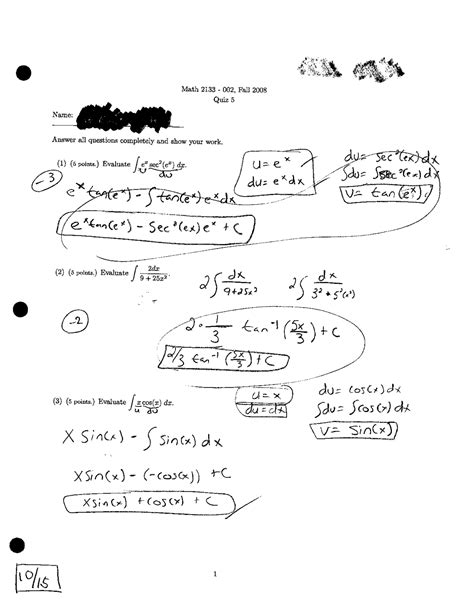 Math 2133 - 002, Fall 2008
Quiz 5
Name:
Answer all questions completely and show your work.
(1) (5 points.) Evaluate ∫ e^x sec²(e^x) dx.
u dv
u = e^x
du = e^x dx
du = sec²(ex) dx
∫du = ∫sec²(ex) dx
v = tan(e^x)
-3
e^x tan(e^x) - ∫ tan(e^x) e^x dx
e^x tan(e^x) - Sec²(ex) e^x + C
(2) (5 points.) Evaluate ∫ 2dx / 9 + 25x².
2 ∫ dx / 9+25x²
2 ∫ dx / 3² + 5²(x²)
-2
2 · 1/3 tan⁻¹ (5x/3) + C
2/3 tan⁻¹ (5x/3) + C
(3) (5 points.) Evaluate ∫ x cos(x) dx.
u dv
u = x
du = dx
du = cos(x) dx
∫du = ∫cos(x) dx
v = sin(x)
x sin(x) - ∫ sin(x) dx
x sin(x) - (-cos(x)) + C
x sin(x) + cos(x) + C
10/15
1